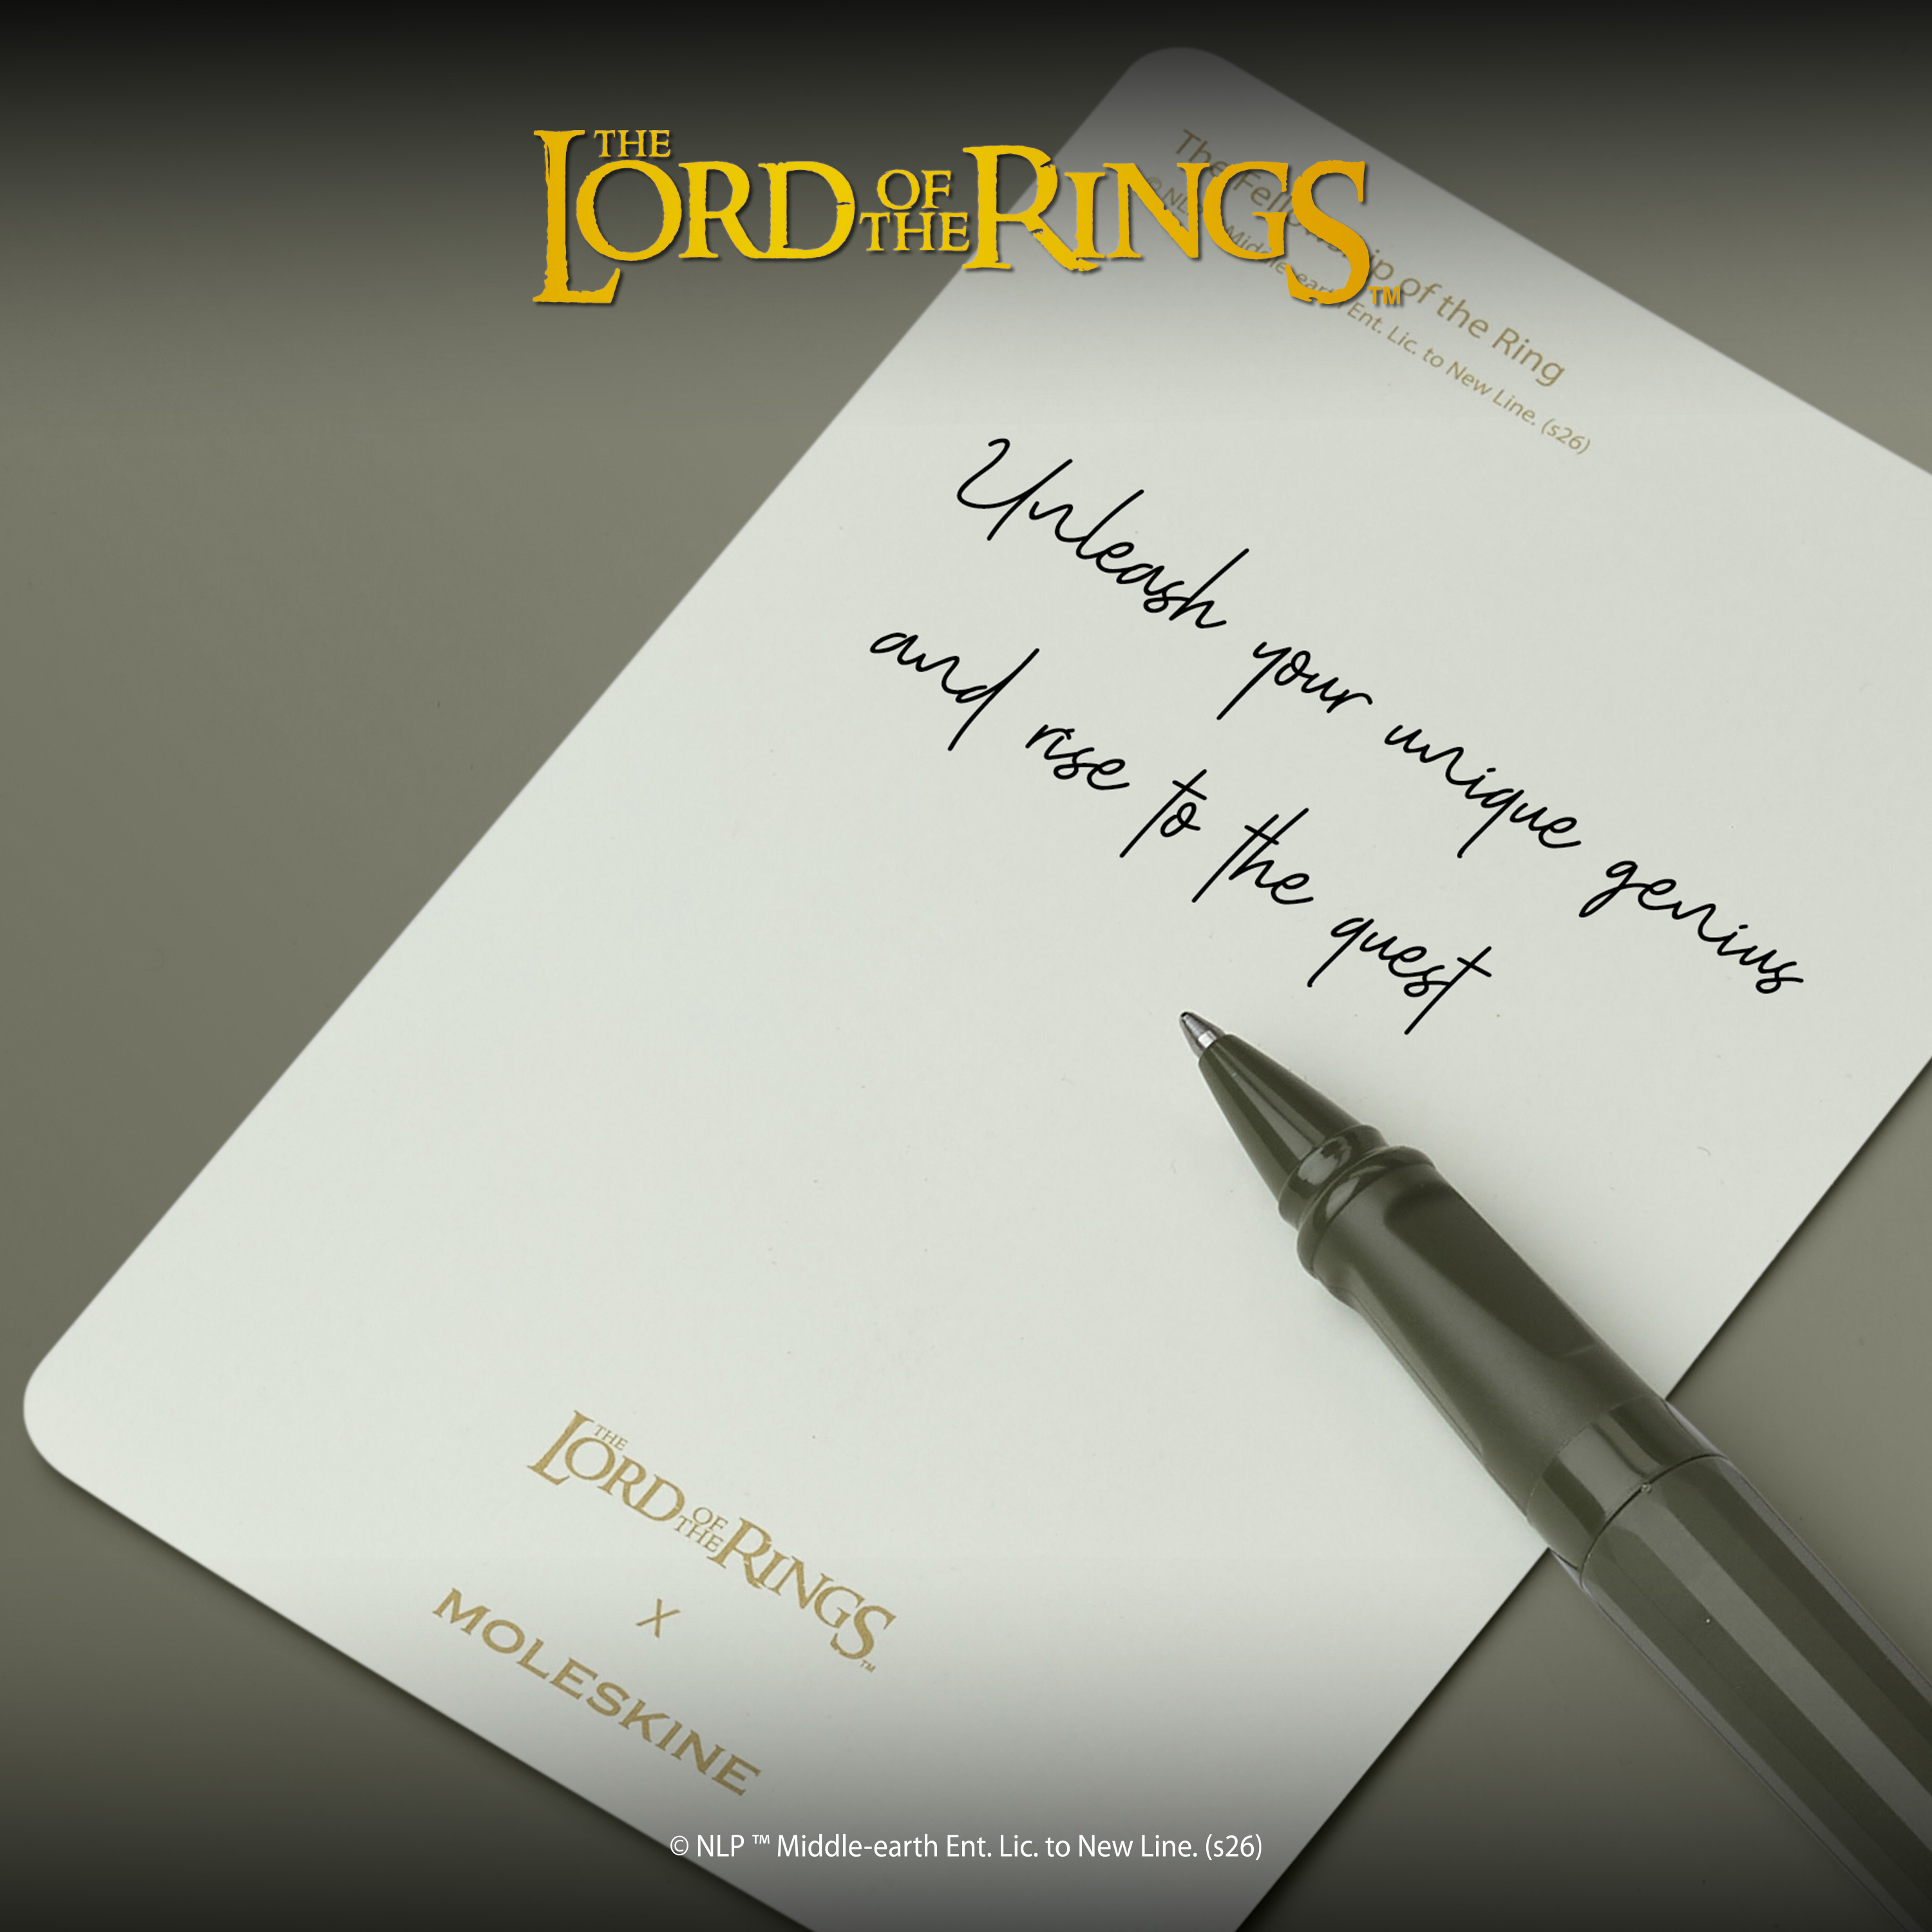 THE LORD OF THE RINGS™
The Fellowship of the Ring
© NLP ™ Middle-earth Ent. Lic. to New Line. (s26)
Unleash your unique genius
and rise to the quest
THE LORD OF THE RINGS™
X
MOLESKINE
© NLP ™ Middle-earth Ent. Lic. to New Line. (s26)